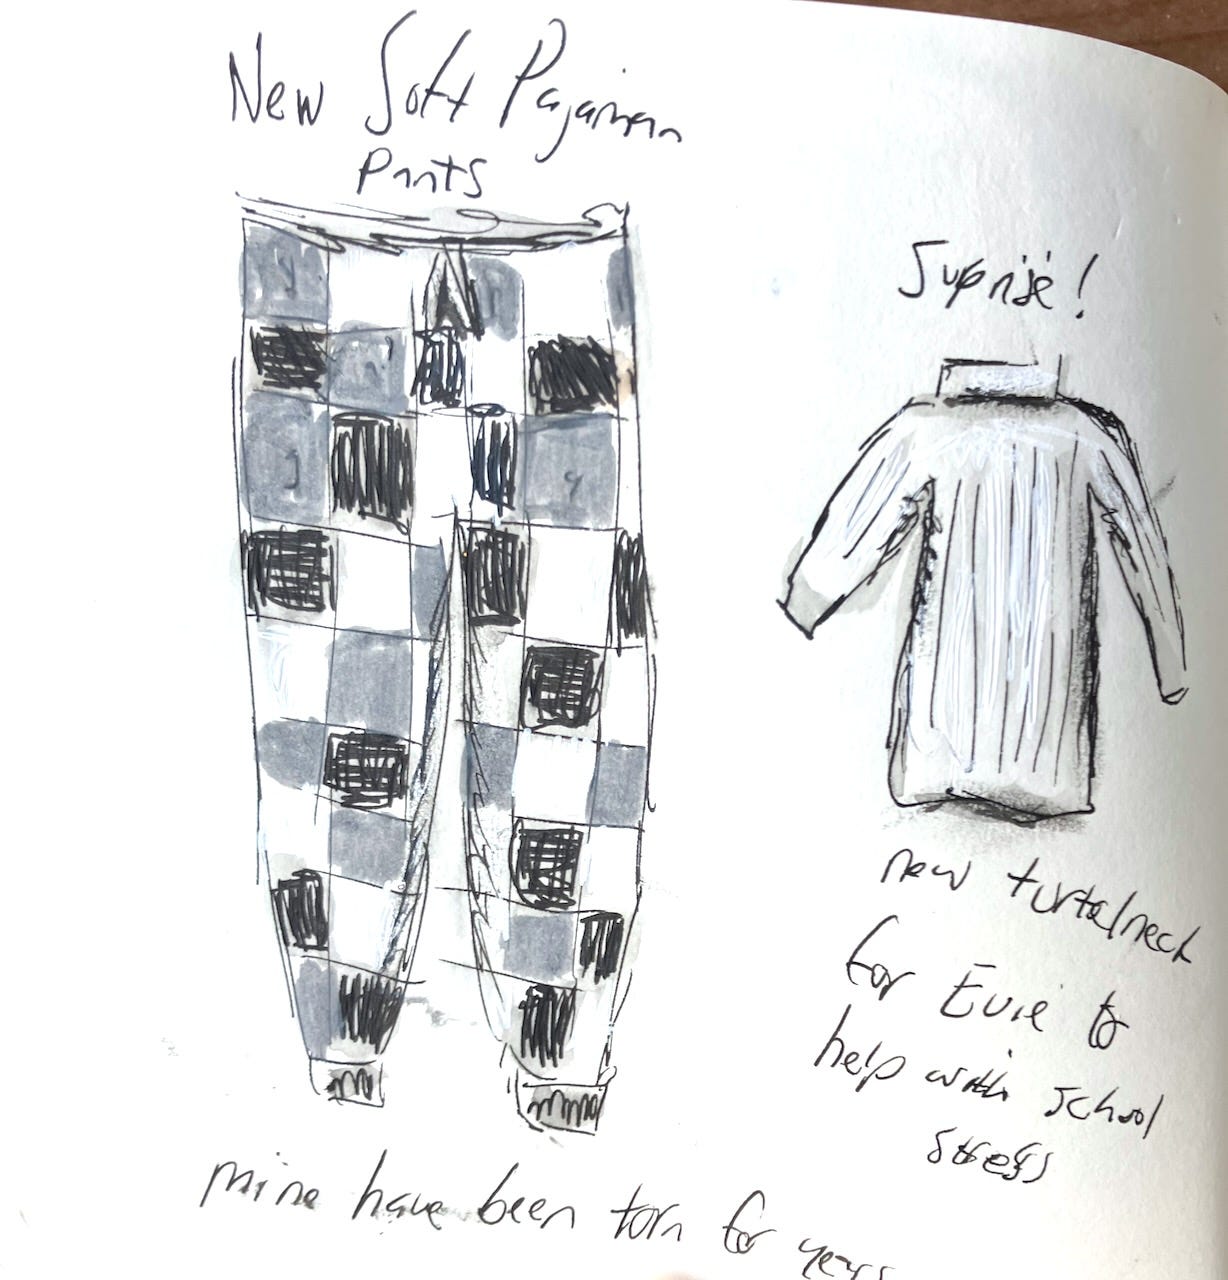 New Soft Pajaman
Pants
Suprise!
new turtalneck
for Evie to
help with school
stress
mine have been torn for years